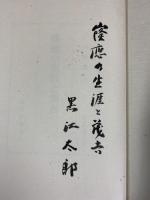 窿應の生涯と茂吉
黒江太郎